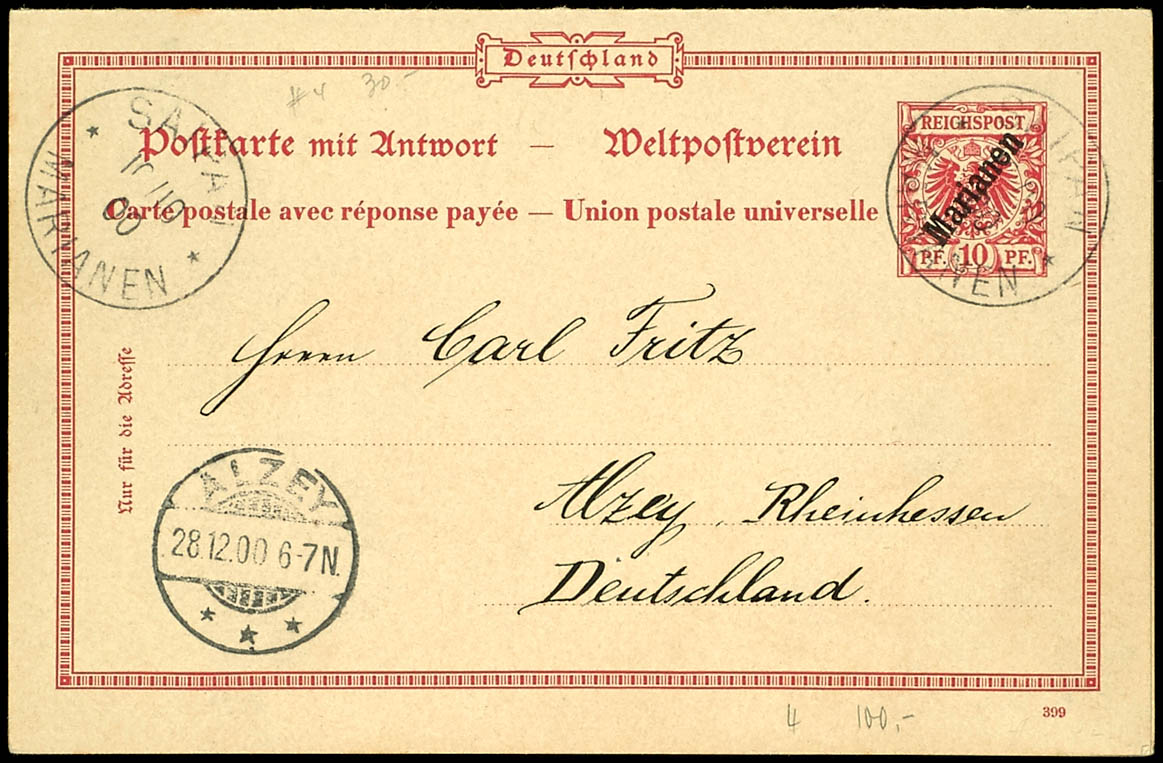 Deutschland
# 4 30.-
Postkarte mit Antwort — Weltpostverein
Carte postale avec réponse payée — Union postale universelle
SAIPAN
MARIANEN
REICHSPOST
Marianen
PF. 10 PF.
Herrn Carl Fritz
Alzey, Rheinhessen
Deutschland.
Nur für die Adresse
ALZEY
28.12.00 6-7N.
4 100,-
399